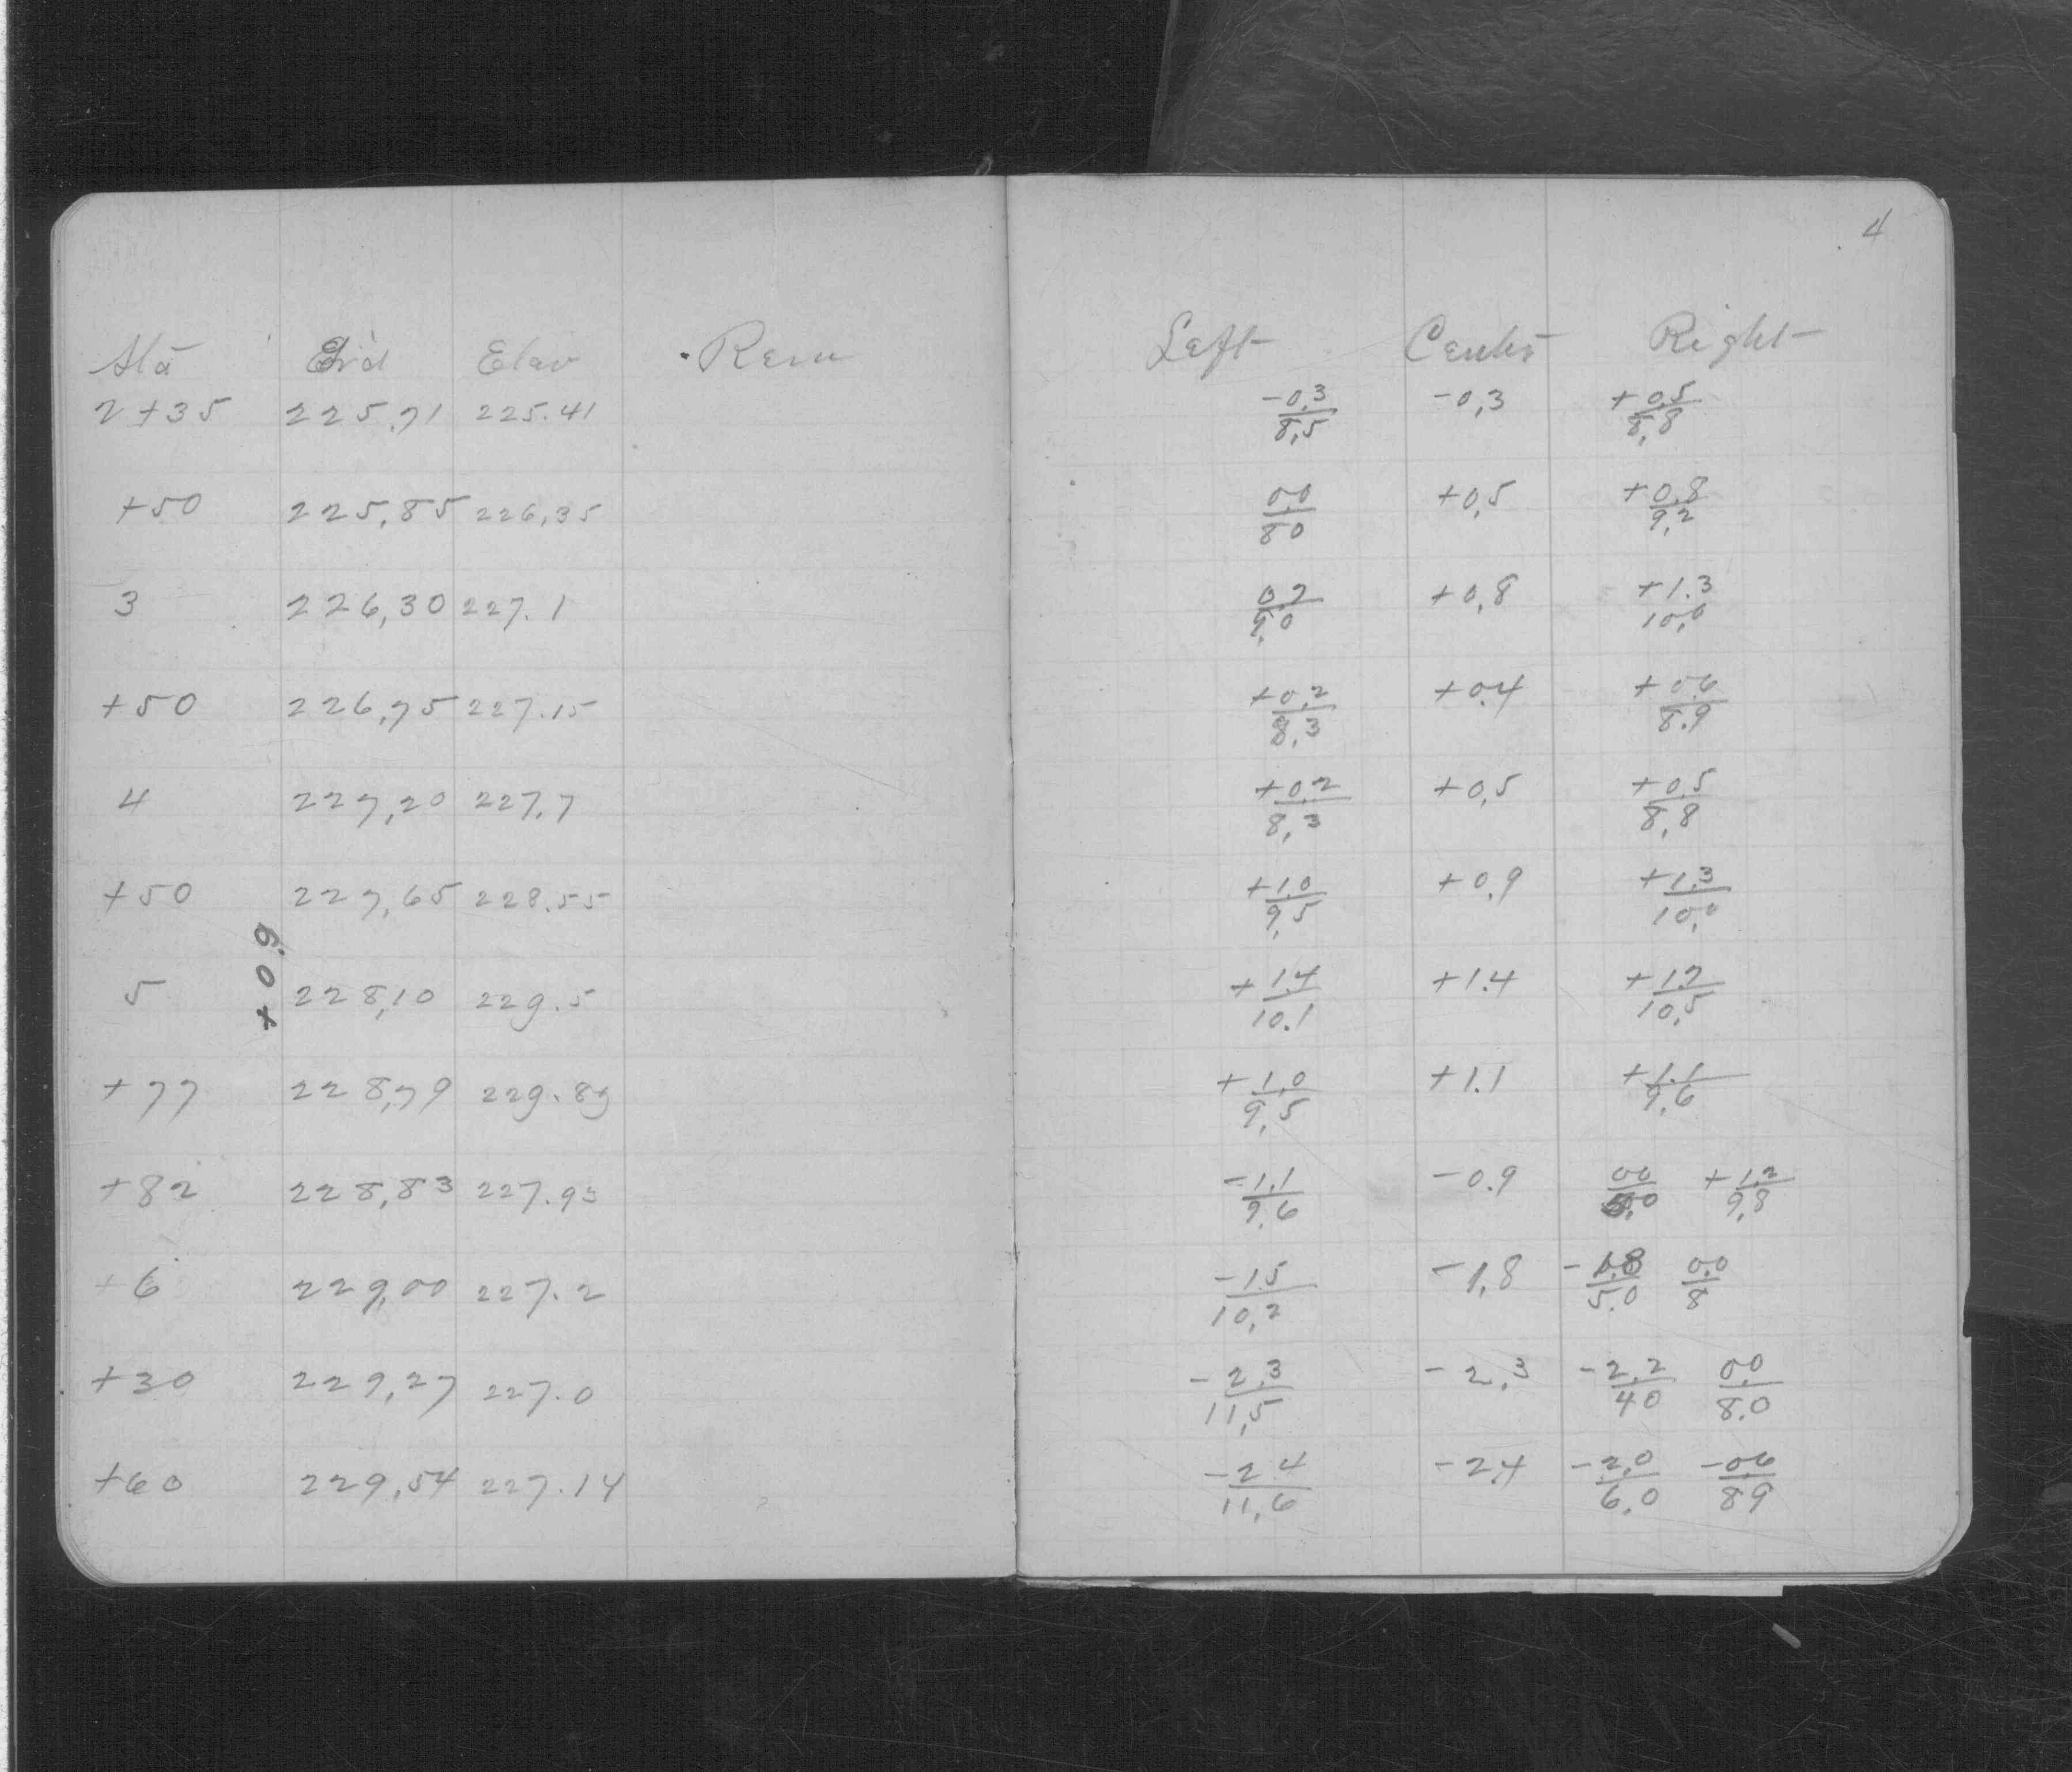 4
Sta Gr'd Elev Rem Left Center Right
2+35 225,71 225.41 -0,3/8,5 -0,3 +0,5/8,8
+50 225,85 226,35 0,0/80 +0,5 +0,8/9,2
3 226,30 227.1 0,7/9,0 +0,8 +1.3/10,0
+50 226,75 227.15 +0,2/8,3 +0.4 +0,6/8.9
4 227,20 227,7 +0,2/8,3 +0,5 +0,5/8,8
+50 227,65 228.55 +1,0/9,5 +0.9 +1,3/10,0
+0.9
5 228,10 229.5 +1.4/10.1 +1.4 +1,7/10,5
+77 228,79 229.89 +1,0/9,5 +1.1 +1.1/9,6
+82 228,83 227.93 -1.1/9,6 -0.9 00/5,0 +1,2/9,8
+6 229,00 227.2 -1.5/10,2 -1,8 -1,8/5.0 0.0/8
+30 229,27 227.0 -2,3/11,5 -2,3 -2,2/40 0,0/8.0
+60 229,54 227.14 -2 4/11,6 -2.4 -2,0/6,0 -0,6/89